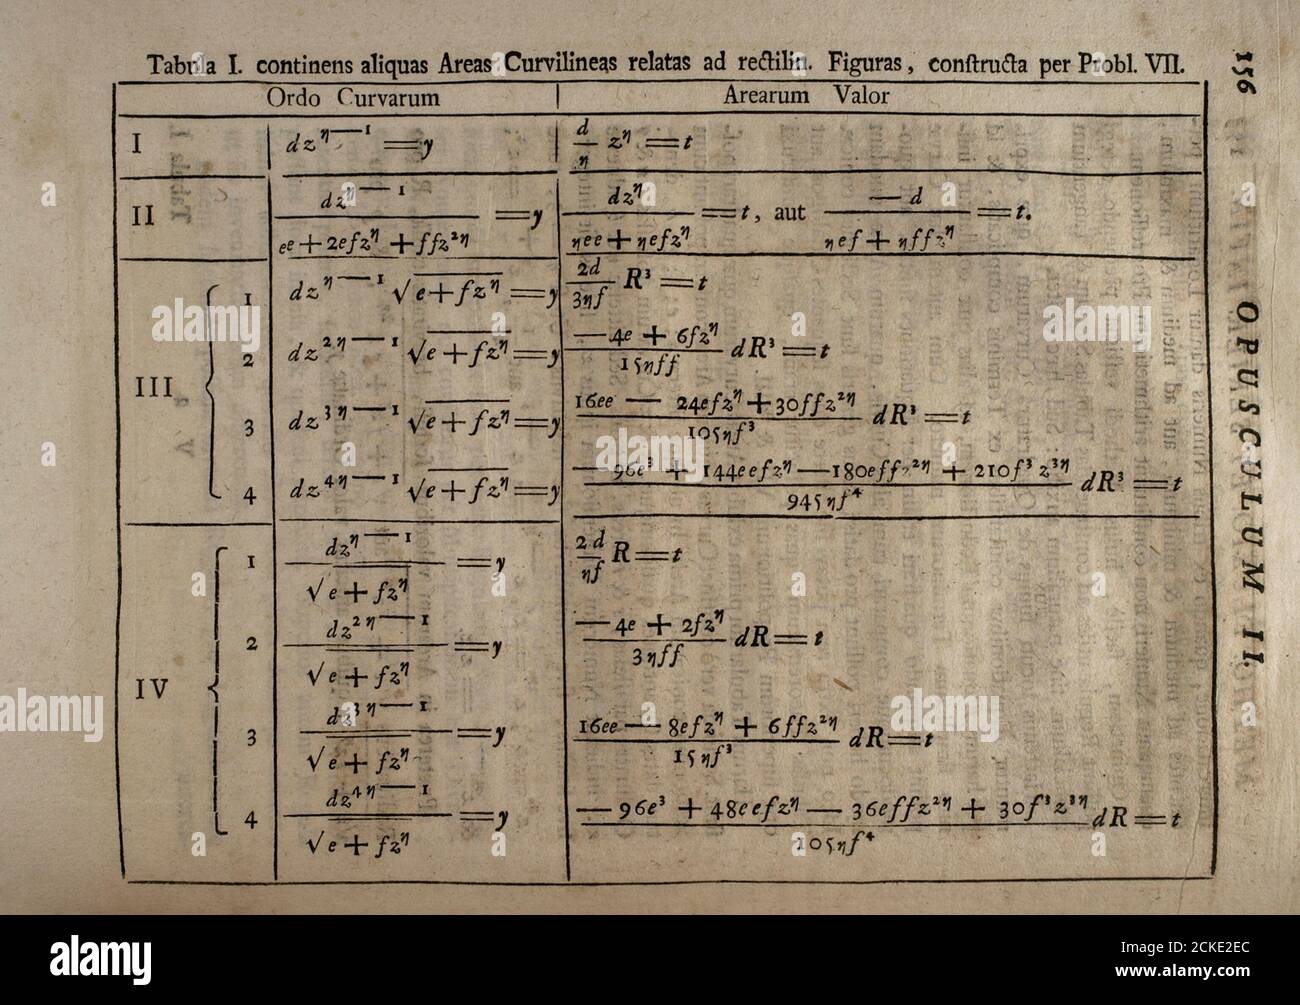 Tabula I. continens aliquas Areas Curvilineas relatas ad rectilin. Figuras, constructa per Probl. VII.
Ordo Curvarum | Arearum Valor
I | dz^{η—1} = y | \frac{d}{η} z^η = t
II | \frac{dz^{η—1}}{ee + 2efz^η + ffz^{2η}} = y | \frac{dz^η}{ηee + ηefz^η} = t, aut \frac{—d}{ηef + ηffz^η} = t.
III
1 | dz^{η—1} √\overline{e + fz^η} = y | \frac{2d}{3ηf} R³ = t
2 | dz^{2η—1} √\overline{e + fz^η} = y | \frac{—4e + 6fz^η}{15ηff} dR³ = t
3 | dz^{3η—1} √\overline{e + fz^η} = y | \frac{16ee — 24efz^η + 30ffz^{2η}}{105ηf³} dR³ = t
4 | dz^{4η—1} √\overline{e + fz^η} = y | \frac{—96e³ + 144eefz^η — 180effz^{2η} + 210f³z^{3η}}{945ηf⁴} dR³ = t
IV
1 | \frac{dz^{η—1}}{√\overline{e + fz^η}} = y | \frac{2d}{ηf} R = t
2 | \frac{dz^{2η—1}}{√\overline{e + fz^η}} = y | \frac{—4e + 2fz^η}{3ηff} dR = t
3 | \frac{dz^{3η—1}}{√\overline{e + fz^η}} = y | \frac{16ee — 8efz^η + 6ffz^{2η}}{15ηf³} dR = t
4 | \frac{dz^{4η—1}}{√\overline{e + fz^η}} = y | \frac{—96e³ + 48eefz^η — 36effz^{2η} + 30f³z^{3η}}{105ηf⁴} dR = t
156 OPUSCULUM II.
alamy
Image ID: 2CKE2EC
www.alamy.com